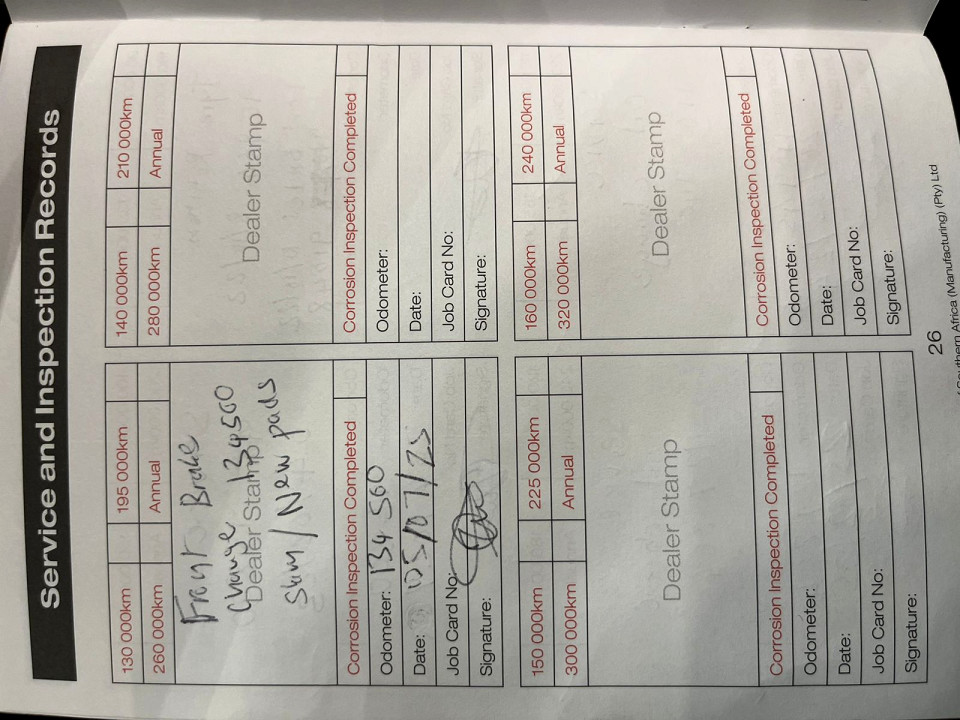 Service and Inspection Records
130 000km 195 000km
260 000km Annual
Front Brake
Change 134500
Dealer Stamp
Skim / New pads
Corrosion Inspection Completed
Odometer: 134 500
Date: 05/07/25
Job Card No:
Signature:
140 000km 210 000km
280 000km Annual
Dealer Stamp
Corrosion Inspection Completed
Odometer:
Date:
Job Card No:
Signature:
150 000km 225 000km
300 000km Annual
Dealer Stamp
Corrosion Inspection Completed
Odometer:
Date:
Job Card No:
Signature:
160 000km 240 000km
320 000km Annual
Dealer Stamp
Corrosion Inspection Completed
Odometer:
Date:
Job Card No:
Signature:
26
Southern Africa (Manufacturing) (Pty) Ltd